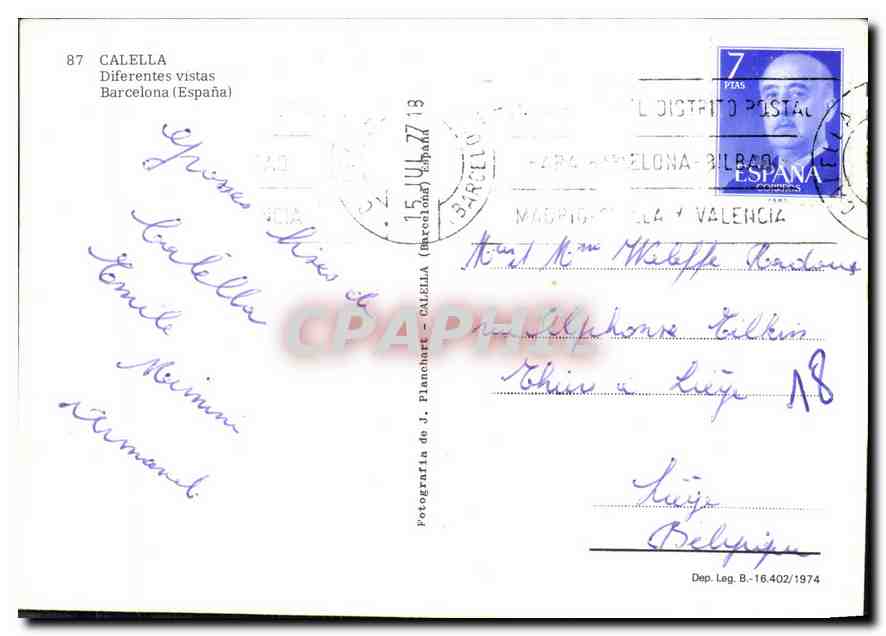 87 CALELLA
Diferentes vistas
Barcelona (España)
Grosses bises de
Calella
Emile
Mimini
Armand
Fotografía de J. Planchart - CALELLA (Barcelona) España
15 JUL 77 18
BARCELO
CALELLA
L DISTRITO POSTAL
PARA BARCELONA-BILBAO
MADRID-SEVILLA Y VALENCIA
7
PTAS
ESPAÑA
CORREOS
CPAPHIL
M et Mme Waleffe
rue Alphonse Tilkin
à Liège 18
Liège
Belgique
Dep. Leg. B.-16.402/1974